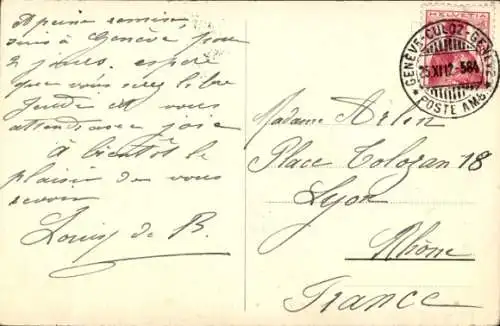 A peine remise
suis à Genève pour
2 jours, espère
que vous serez libre
Jeudi et vous
attends avec joie
à bientôt le
plaisir de vous
revoir
Louis de B.
HELVETIA
GENÈVE-CULOZ-GENÈVE
25 XI 12 - 584
POSTE AMB.
Madame Arlin
Place Tolozan 18
Lyon
Rhône
France